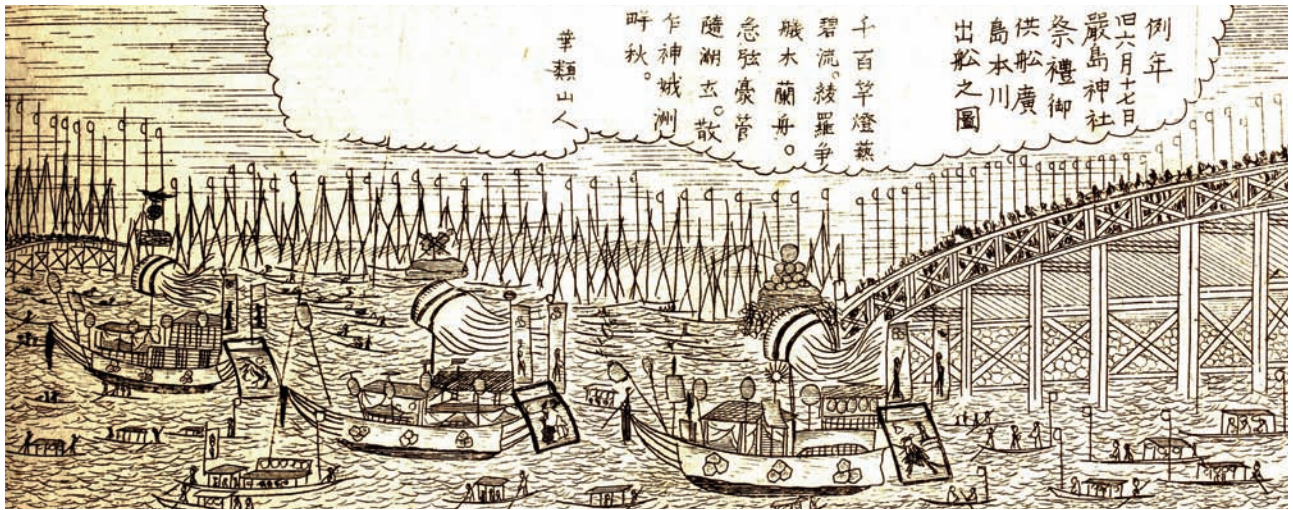 例年
旧六月十七日
嚴島神社
祭禮御
供舩廣
島本川
出舩之圖
千百竿燈蘸
碧流。綾羅争
艤木蘭舟。
急弦豪管
隨潮去。散
乍神娥洲
畔秋。
華類山人